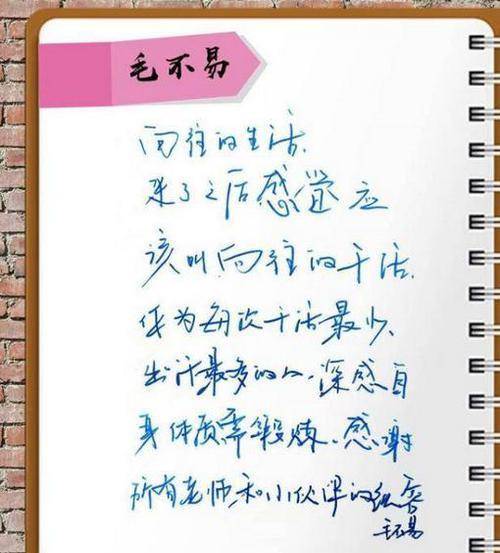 毛不易
向往的生活.
来了之后感觉应
该叫向往的干活.
作为每次干活最少、
出汗最多的人,深感自
身体质需锻炼、感谢
所有老师和小伙伴的组
毛不易